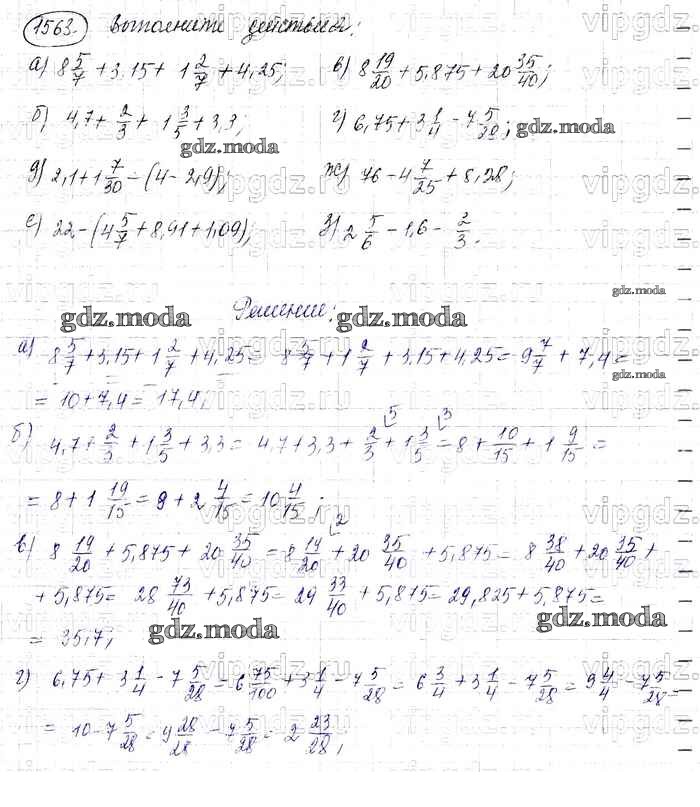 1563. Выполните действия:
а) 8 5/7 + 3,15 + 1 2/7 + 4,25; в) 8 19/20 + 5,875 + 20 35/40;
б) 4,7 + 2/3 + 1 3/5 + 3,3; г) 6,75 + 3 1/4 - 7 5/28;
gdz.moda gdz.moda
д) 2,1 + 1 7/30 - (4 - 2,9); ж) 76 - 4 7/25 + 8,28;
е) 22 - (4 5/7 + 8,91 + 1,09); з) 2 5/6 - 1,6 - 2/3.
gdz.moda
Решение:
gdz.moda gdz.moda
а) 8 5/7 + 3,15 + 1 2/7 + 4,25 = 8 5/7 + 1 2/7 + 3,15 + 4,25 = 9 7/7 + 7,4 =
gdz.moda
= 10 + 7,4 = 17,4;
б) 4,7 + 2/3 + 1 3/5 + 3,3 = 4,7 + 3,3 + 2/3 + 1 3/5 = 8 + 10/15 + 1 9/15 =
= 8 + 1 19/15 = 9 + 2 4/15 = 10 4/15;
gdz.moda
в) 8 19/20 + 5,875 + 20 35/40 = 8 19/20 + 20 35/40 + 5,875 = 8 38/40 + 20 35/40 +
+ 5,875 = 28 73/40 + 5,875 = 29 33/40 + 5,875 = 29,825 + 5,875 =
= 35,7;
gdz.moda gdz.moda
г) 6,75 + 3 1/4 - 7 5/28 = 6 75/100 + 3 1/4 - 7 5/28 = 6 3/4 + 3 1/4 - 7 5/28 = 9 4/4 - 7 5/28 =
= 10 - 7 5/28 = 9 28/28 - 7 5/28 = 2 23/28;